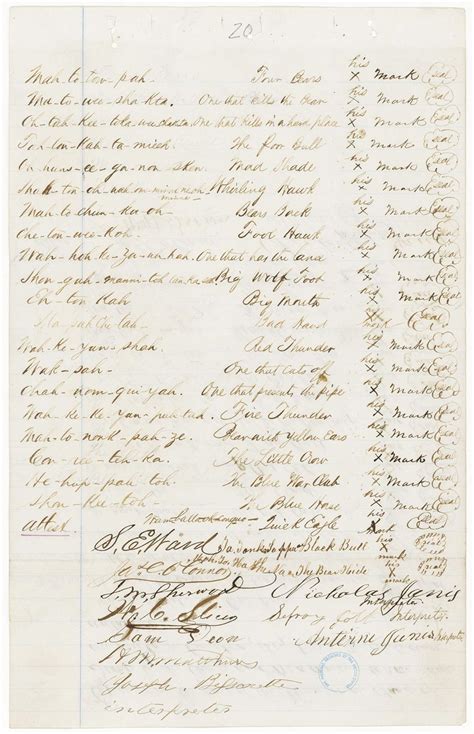 20
Mah-to-ton-pah- Four Bears his x Mark Seal
Ma-to-wee-sha-kta. One that kills the Bear his x Mark Seal
Oh-tah-kee-toka-wee- One that kills in a hard place his x Mark Seal
Ta-ton-kah-ta-miech. The Poor Bull his x Mark Seal
Oh-huns-ee-ga-non-sken. Mad Shade his x Mark Seal
Shah-ton-oh-nah-om- Whirling Hawk his x Mark Seal
Mah-to-chun-ka-oh- Bears Back his x Mark Seal
Che-ton-wee-koh. Fool Hawk his x Mark Seal
Wah-hoh-ke-za-ah-hah. One that has the Lance his x Mark Seal
Shon-gah-manni-toh-tan-ka-seh Big Wolf Foot his x Mark Seal
Eh-ton-kah Big Mouth his x Mark Seal
Ma-pah-che-tah- Bad Hand his x Mark Seal
Wah-ke-yun-shah. Red Thunder his x Mark Seal
Wak-sah- One that Cuts Off his x Mark Seal
Chah-nom-qui-yah. One that presents the Pipe his x Mark Seal
Wah-ke-ke-yan-puh-tah. Fire Thunder his x Mark Seal
Mah-to-nonk-pah-ze. Bear with Yellow Ears his x Mark Seal
Con-ree-teh-ka. The Little Crow his x Mark Seal
He-hup-pah-toh. The Blue War Club his x Mark Seal
Shon-kee-toh. The Blue Hose his x Mark Seal
Attest. Quick Eagle his x Mark Seal
S. E. Ward Black Bull his x mark Seal
Jas. C. O'Connor The Bear Hide his x mark Seal
J. M. Sherwood Nicholas Janis
Interpreter
W. C. Slicer Lefroy Jott Interpreter
Sam Deon Antoine Janis Interpreter
H. M. Matthews
Joseph Bissonette
interpreter